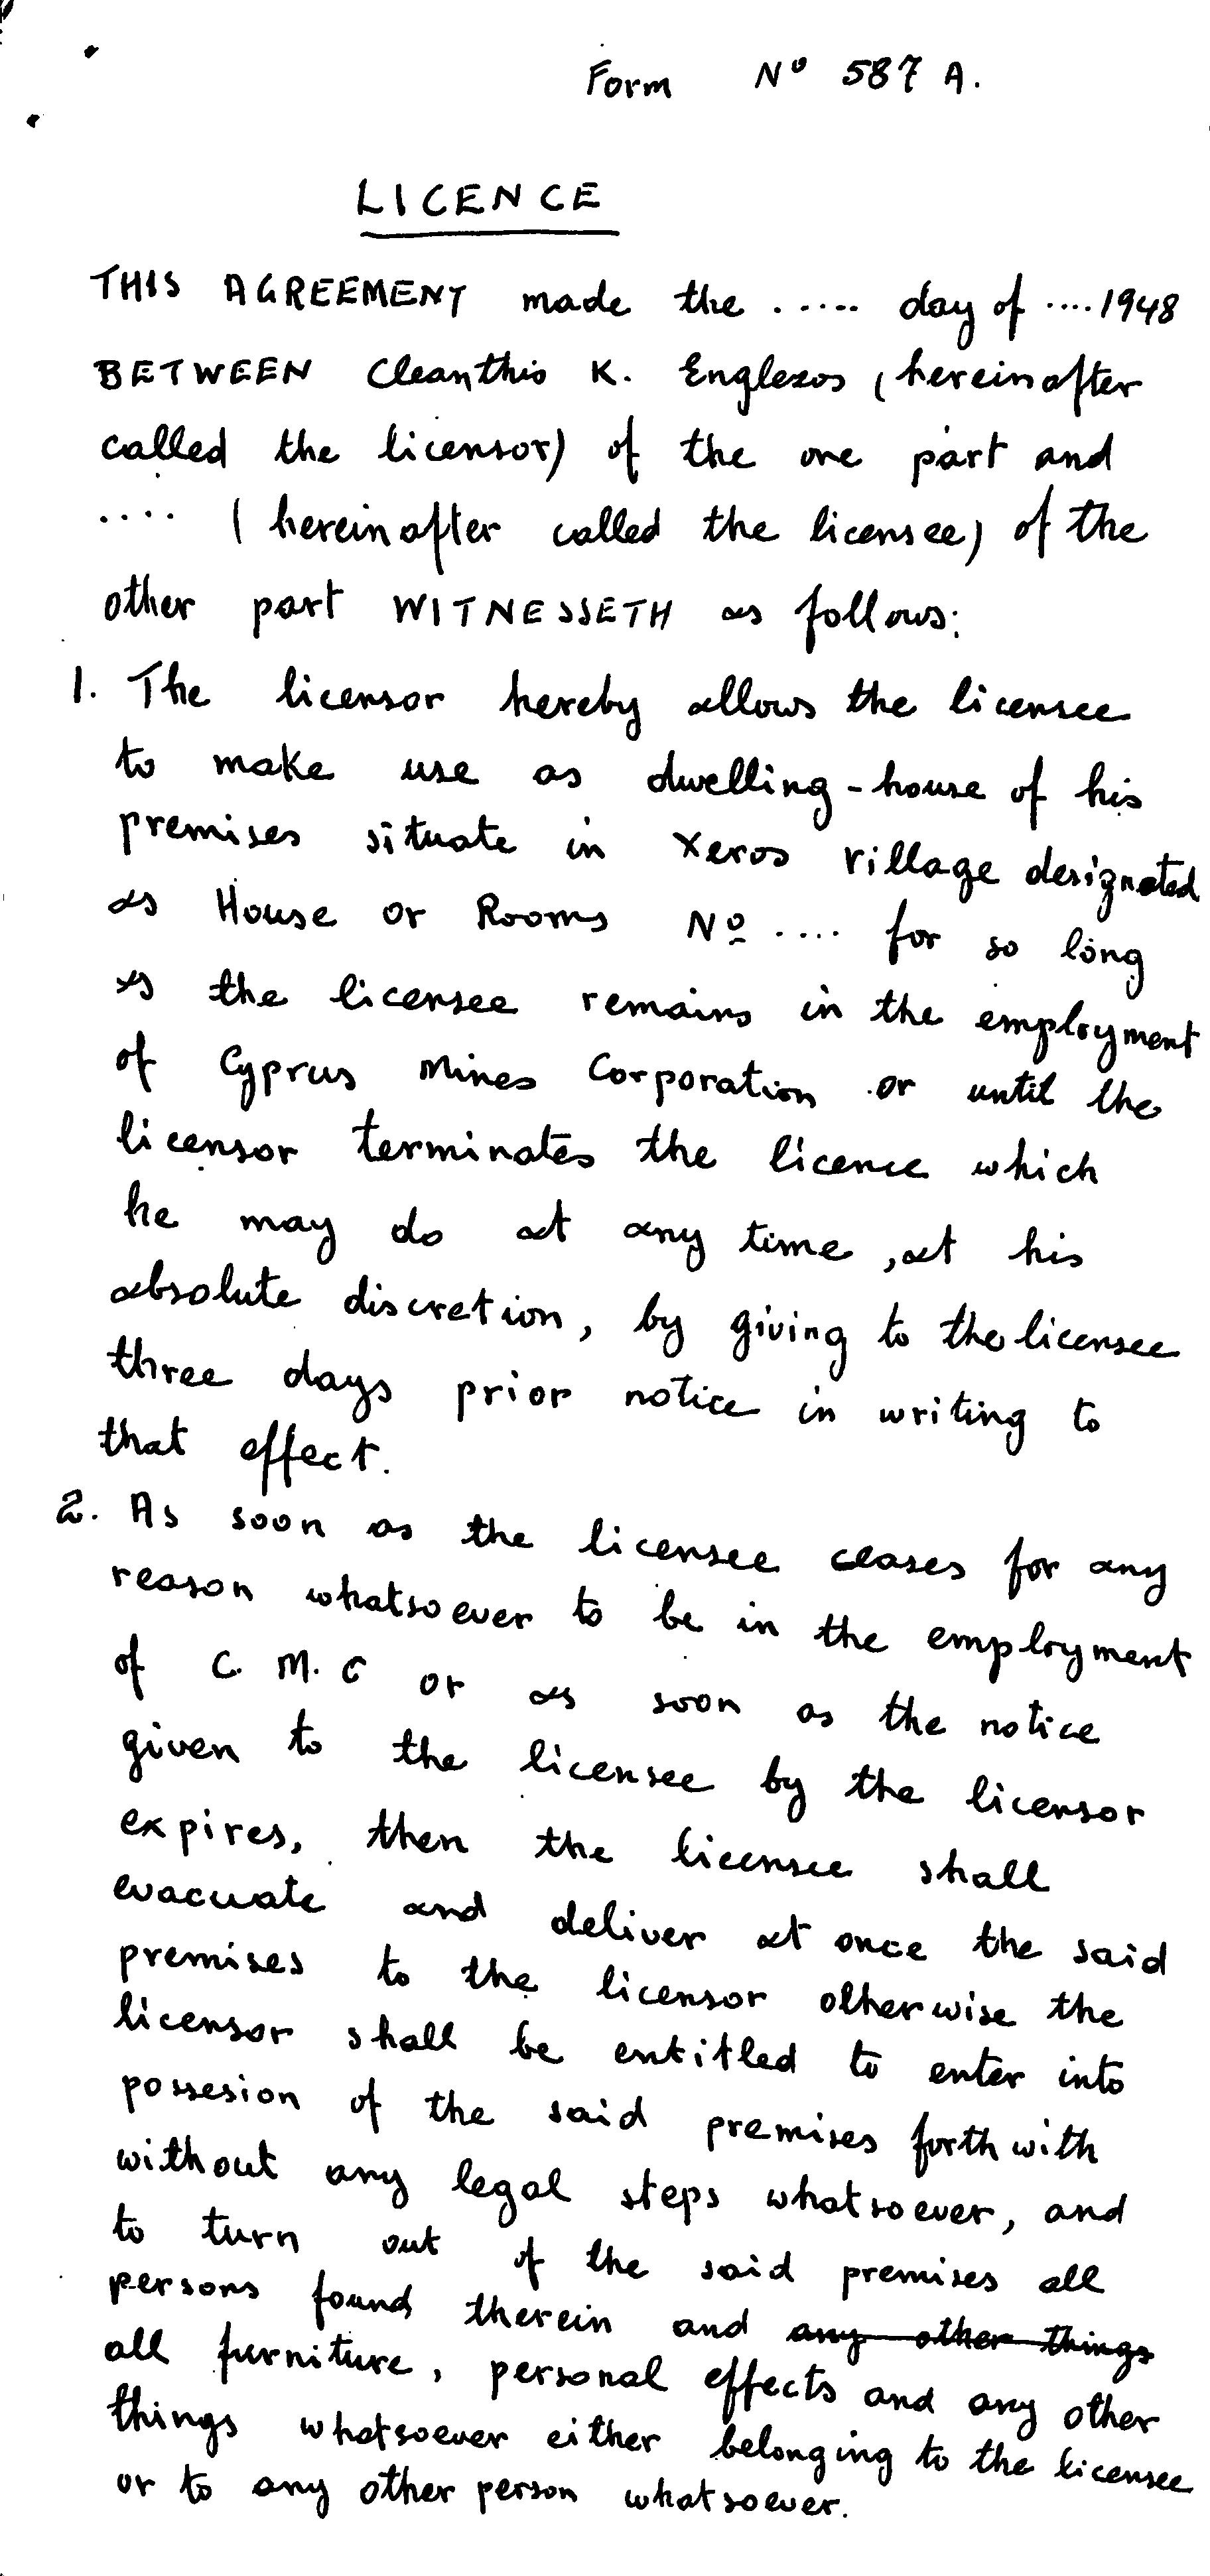 Form Nº 587 A.
LICENCE
THIS AGREEMENT made the ..... day of .... 1948
BETWEEN Cleanthis K. Englezos (hereinafter
called the licensor) of the one part and
.... (hereinafter called the licensee) of the
other part WITNESSETH as follows:
1. The licensor hereby allows the licensee
to make use as dwelling-house of his
premises situate in Xeros village designated
as House or Rooms Nº .... for so long
as the licensee remains in the employment
of Cyprus Mines Corporation or until the
licensor terminates the licence which
he may do at any time, at his
absolute discretion, by giving to the licensee
three days prior notice in writing to
that effect.
2. As soon as the licensee ceases for any
reason whatsoever to be in the employment
of C. M. C or as soon as the notice
given to the licensee by the licensor
expires, then the licensee shall
evacuate and deliver at once the said
premises to the licensor otherwise the
licensor shall be entitled to enter into
possesion of the said premises forthwith
without any legal steps whatsoever, and
to turn out of the said premises all
persons found therein and any other things
all furniture, personal effects and any other
things whatsoever either belonging to the licensee
or to any other person whatsoever.